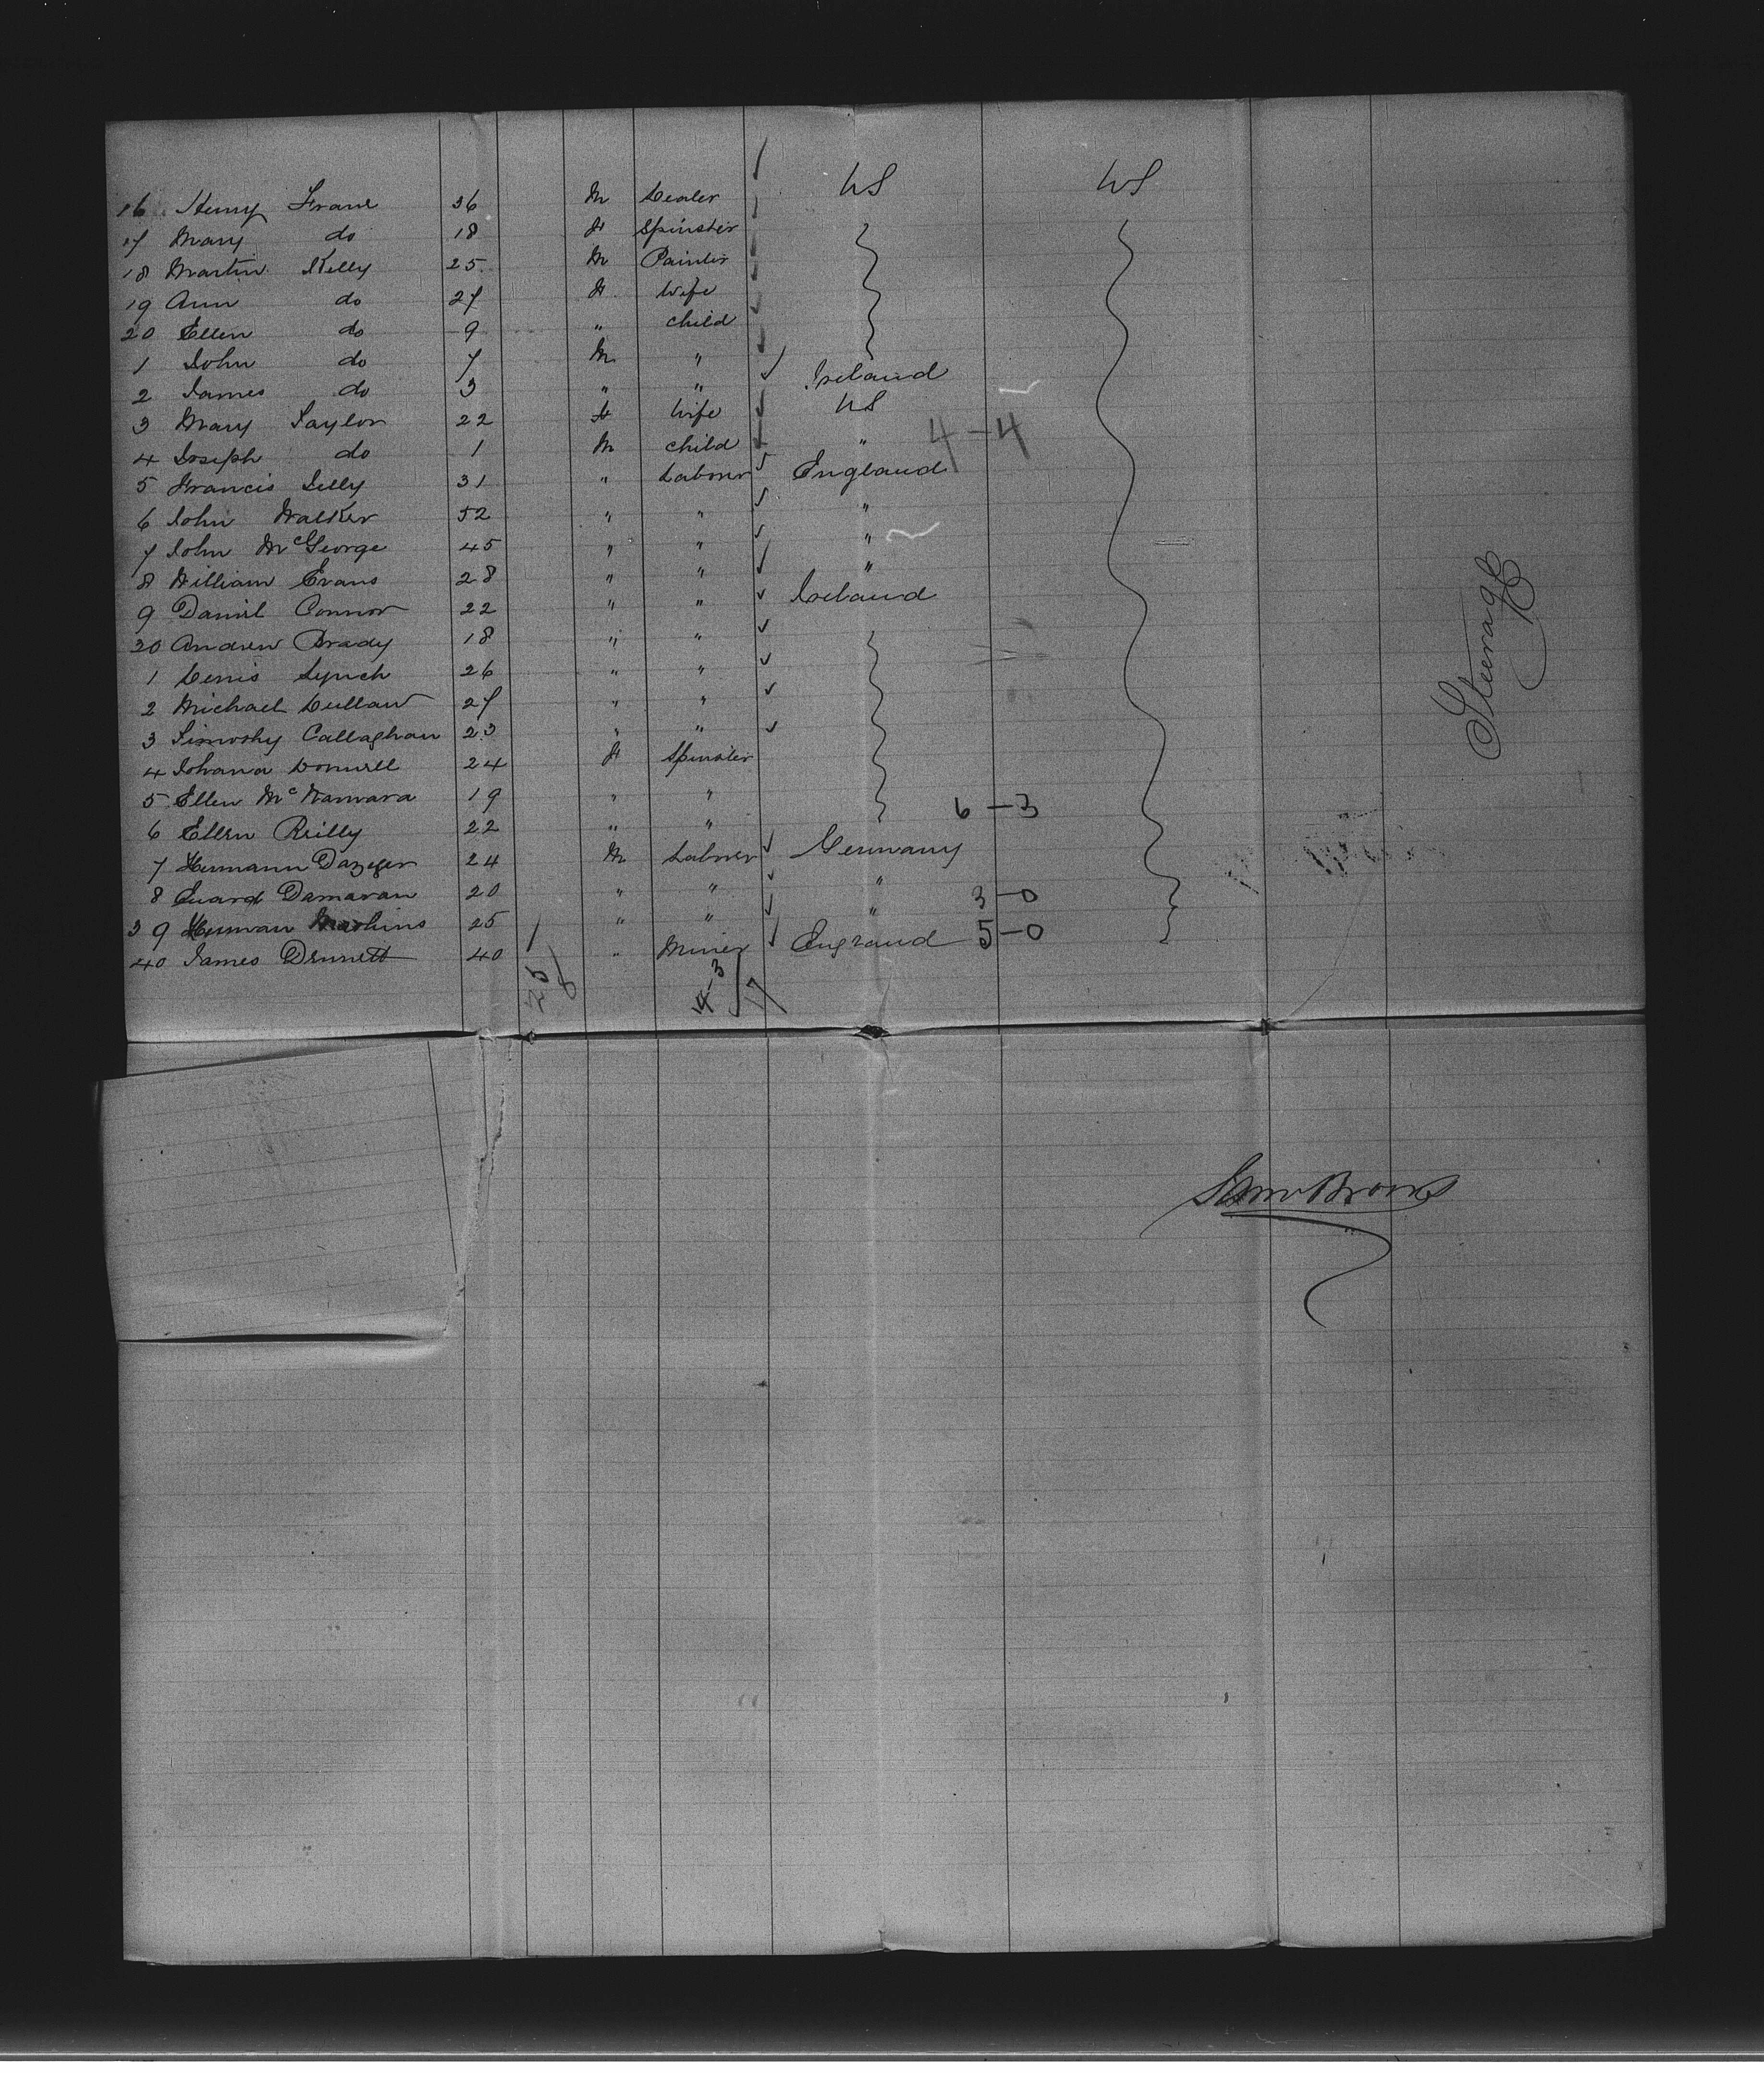 US US
16 Henry Frane 36 M Dealer
17 Mary do 18 F Spinster
18 Martin Kelly 25 M Painter
19 Ann do 27 F Wife
20 Ellen do 9 " child
1 John do 7 M "
2 James do 3 " " Ireland
3 Mary Taylor 22 F Wife US
4 Joseph do 1 M child " 4-4
5 Francis Jelly 31 " Laborer England
6 John Walker 52 " " "
7 John McGeorge 45 " " "
8 William Evans 28 " " "
9 Daniel Connor 22 " " Ireland
30 Andrew Brady 18 " "
1 Denis Lynch 26 " "
2 Michael Cullaw 27 " "
3 Timothy Callaghan 23 " "
4 Johana Donnell 24 F Spinster
5 Ellen McNamara 19 " "
6 Ellen Reilly 22 " " 6-3
7 Hermann 24 M Laborer Germany
8 Damaran 20 " " " 3-0
39 Herman 25 " " "
40 James Dennett 40 " Miner England 5-0
14-3
17
Steerage